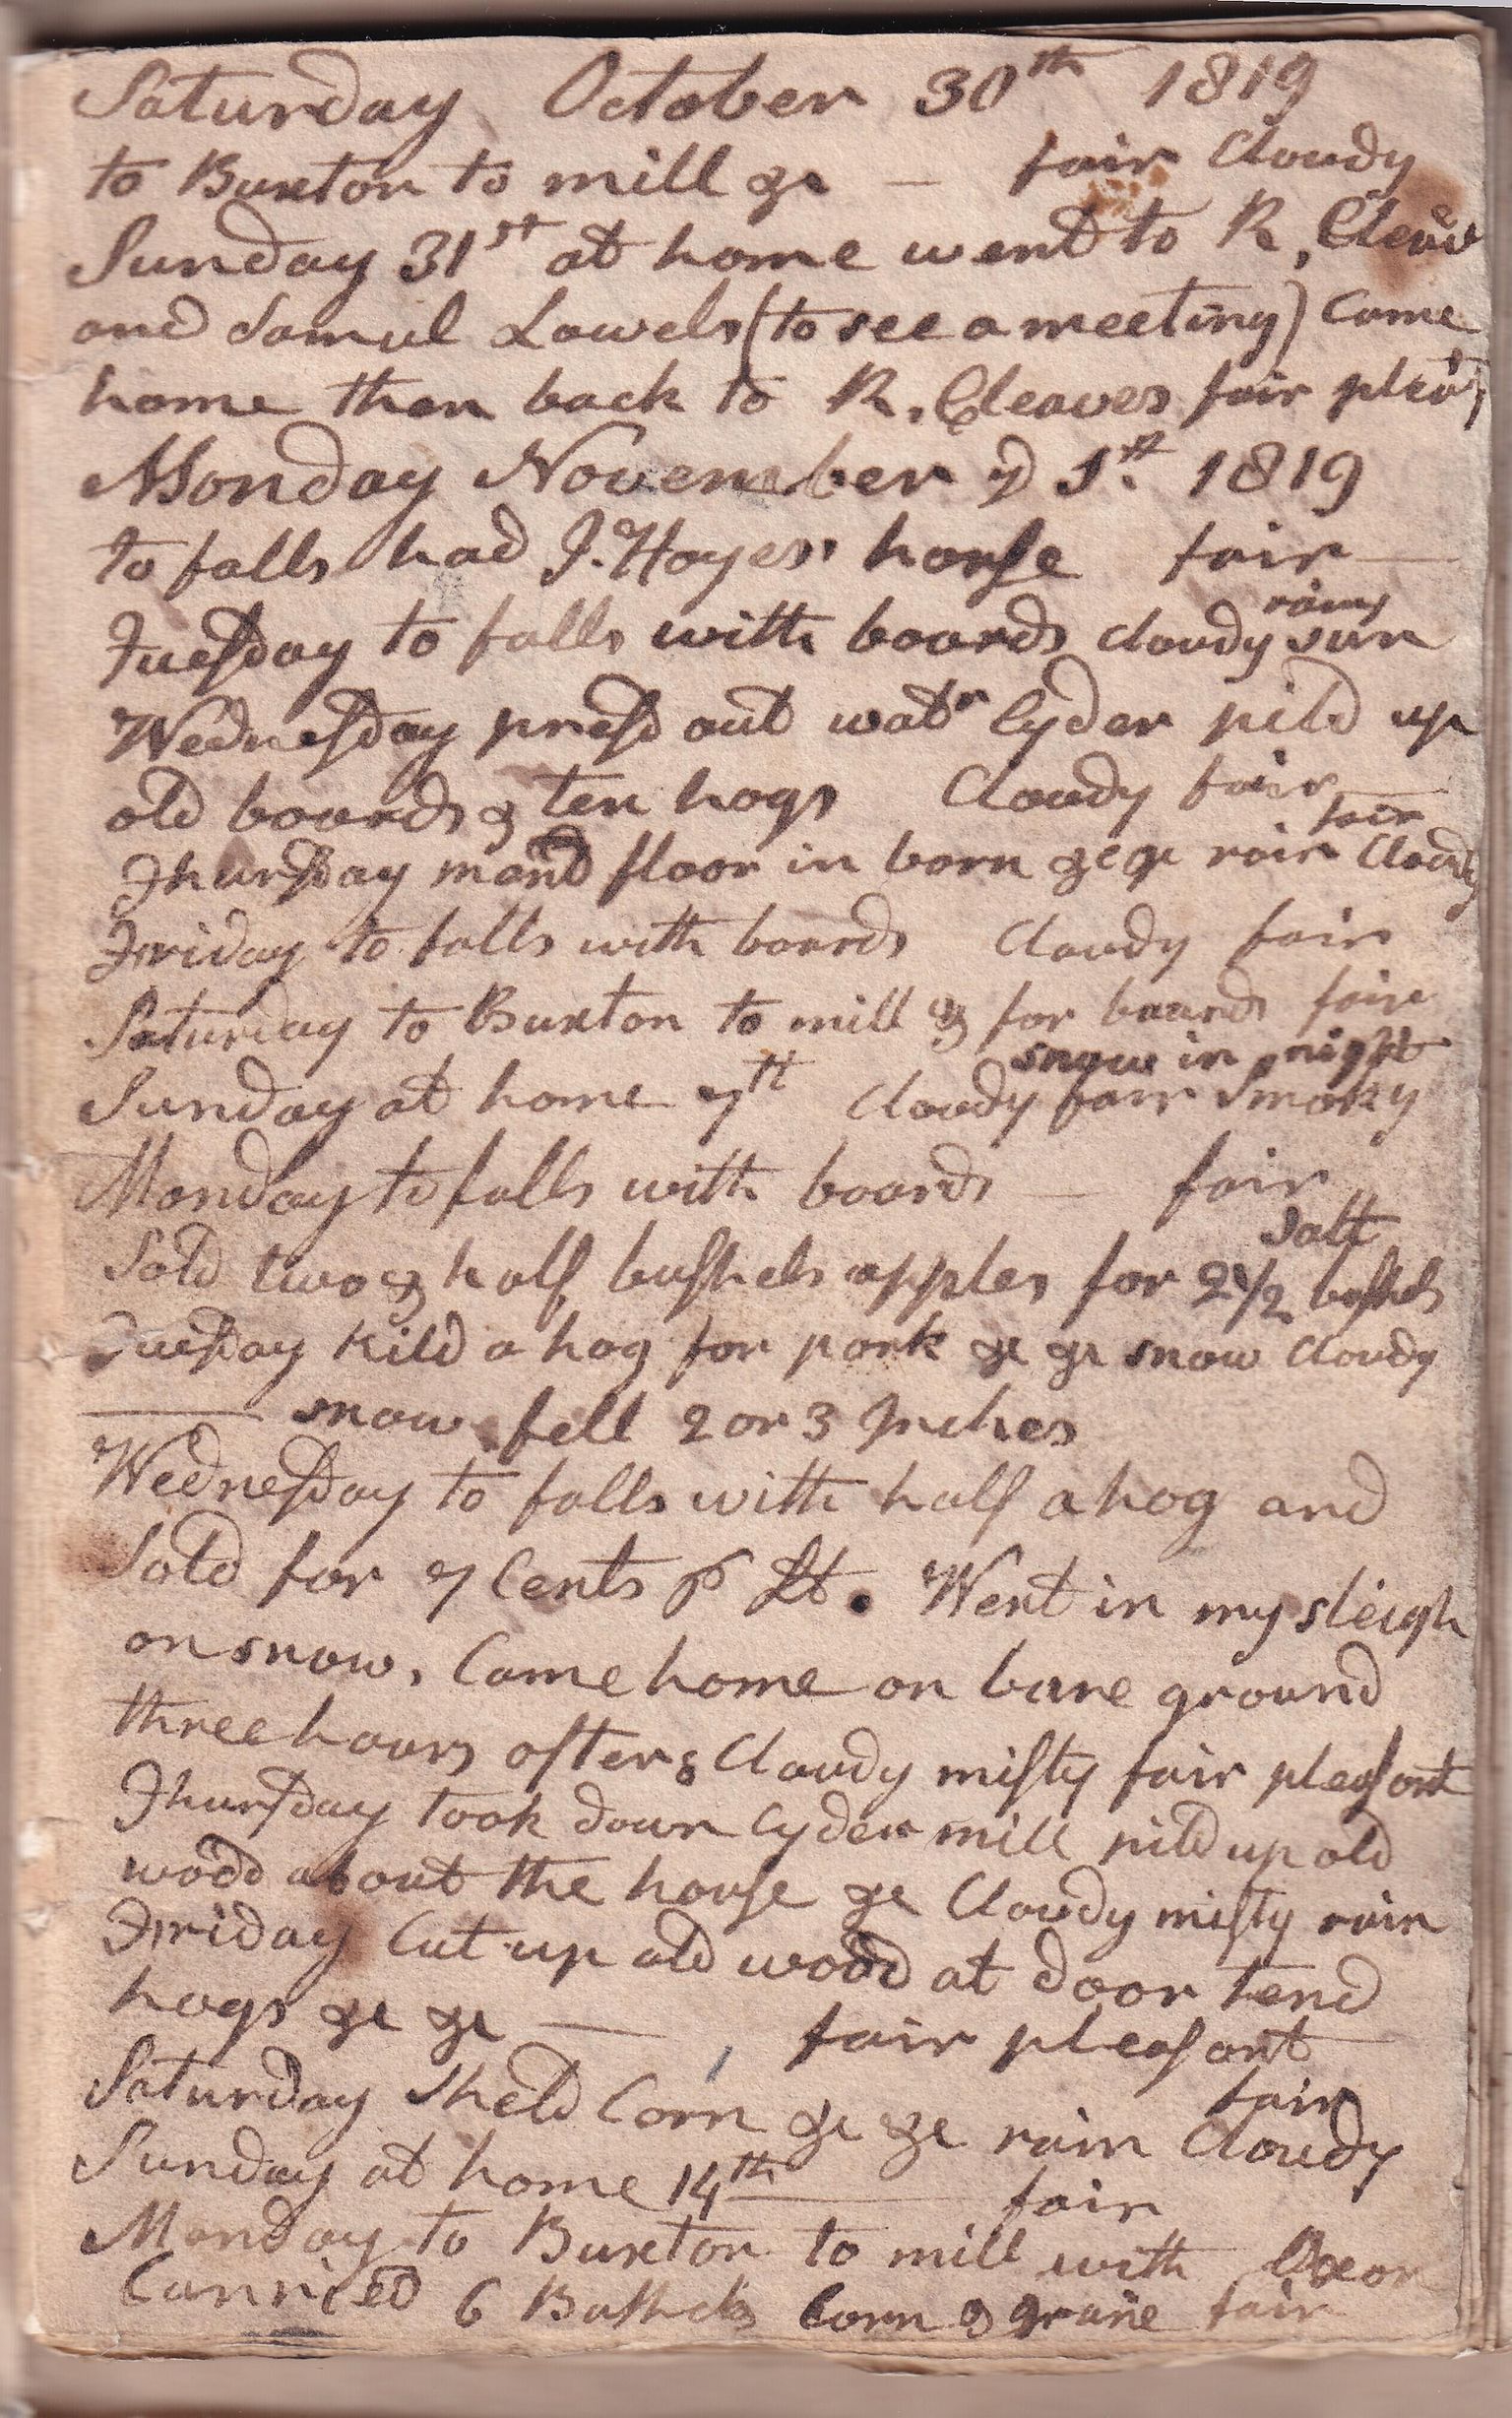 Saturday October 30th 1819
to Buxton to mill &c — fair Cloudy
Sunday 31st at home went to R, Cleav
and Samul Lowels (to see a meeting) Came
home then back to R. Cleaves fair pleas
Monday November ye 1st. 1819
to falls had J. Hayes, horse fair —
rainy
Tuesday to falls with boards Cloudy sun
Wednesday presd out watr Cyder pild up
old boards & ten hogs Cloudy fair
fair
Thursday mend floor in barn &c &c rain Cloudy
Friday to falls with boards Cloudy fair
Saturday to Buxton to mill & for boards fair
snow in night
Sunday at home 7th Cloudy fair Smoky
Monday to falls with boards — fair
Salt
Sold two & half bushels apples for 2 1/2 bushels
Tuesday Kild a hog for pork &c &c snow Cloudy
— snow fell 2 or 3 Inches
Wednesday to falls with half a hog and
Sold for 7 Cents P lb. Went in my sleigh
on snow, Came home on bare ground
three hours after & Cloudy misty fair pleasant
Thursday took down Cyder mill pild up old
wood about the house &c Cloudy misty rain
Friday Cut up old wood at door tend
hogs &c &c — fair pleasant
fair
Saturday Sheld Corn &c &c rain Cloudy
Sunday at home 14th — fair
Monday to Buxton to mill with Oxen
Carried 6 Bushels Corn & graine fair